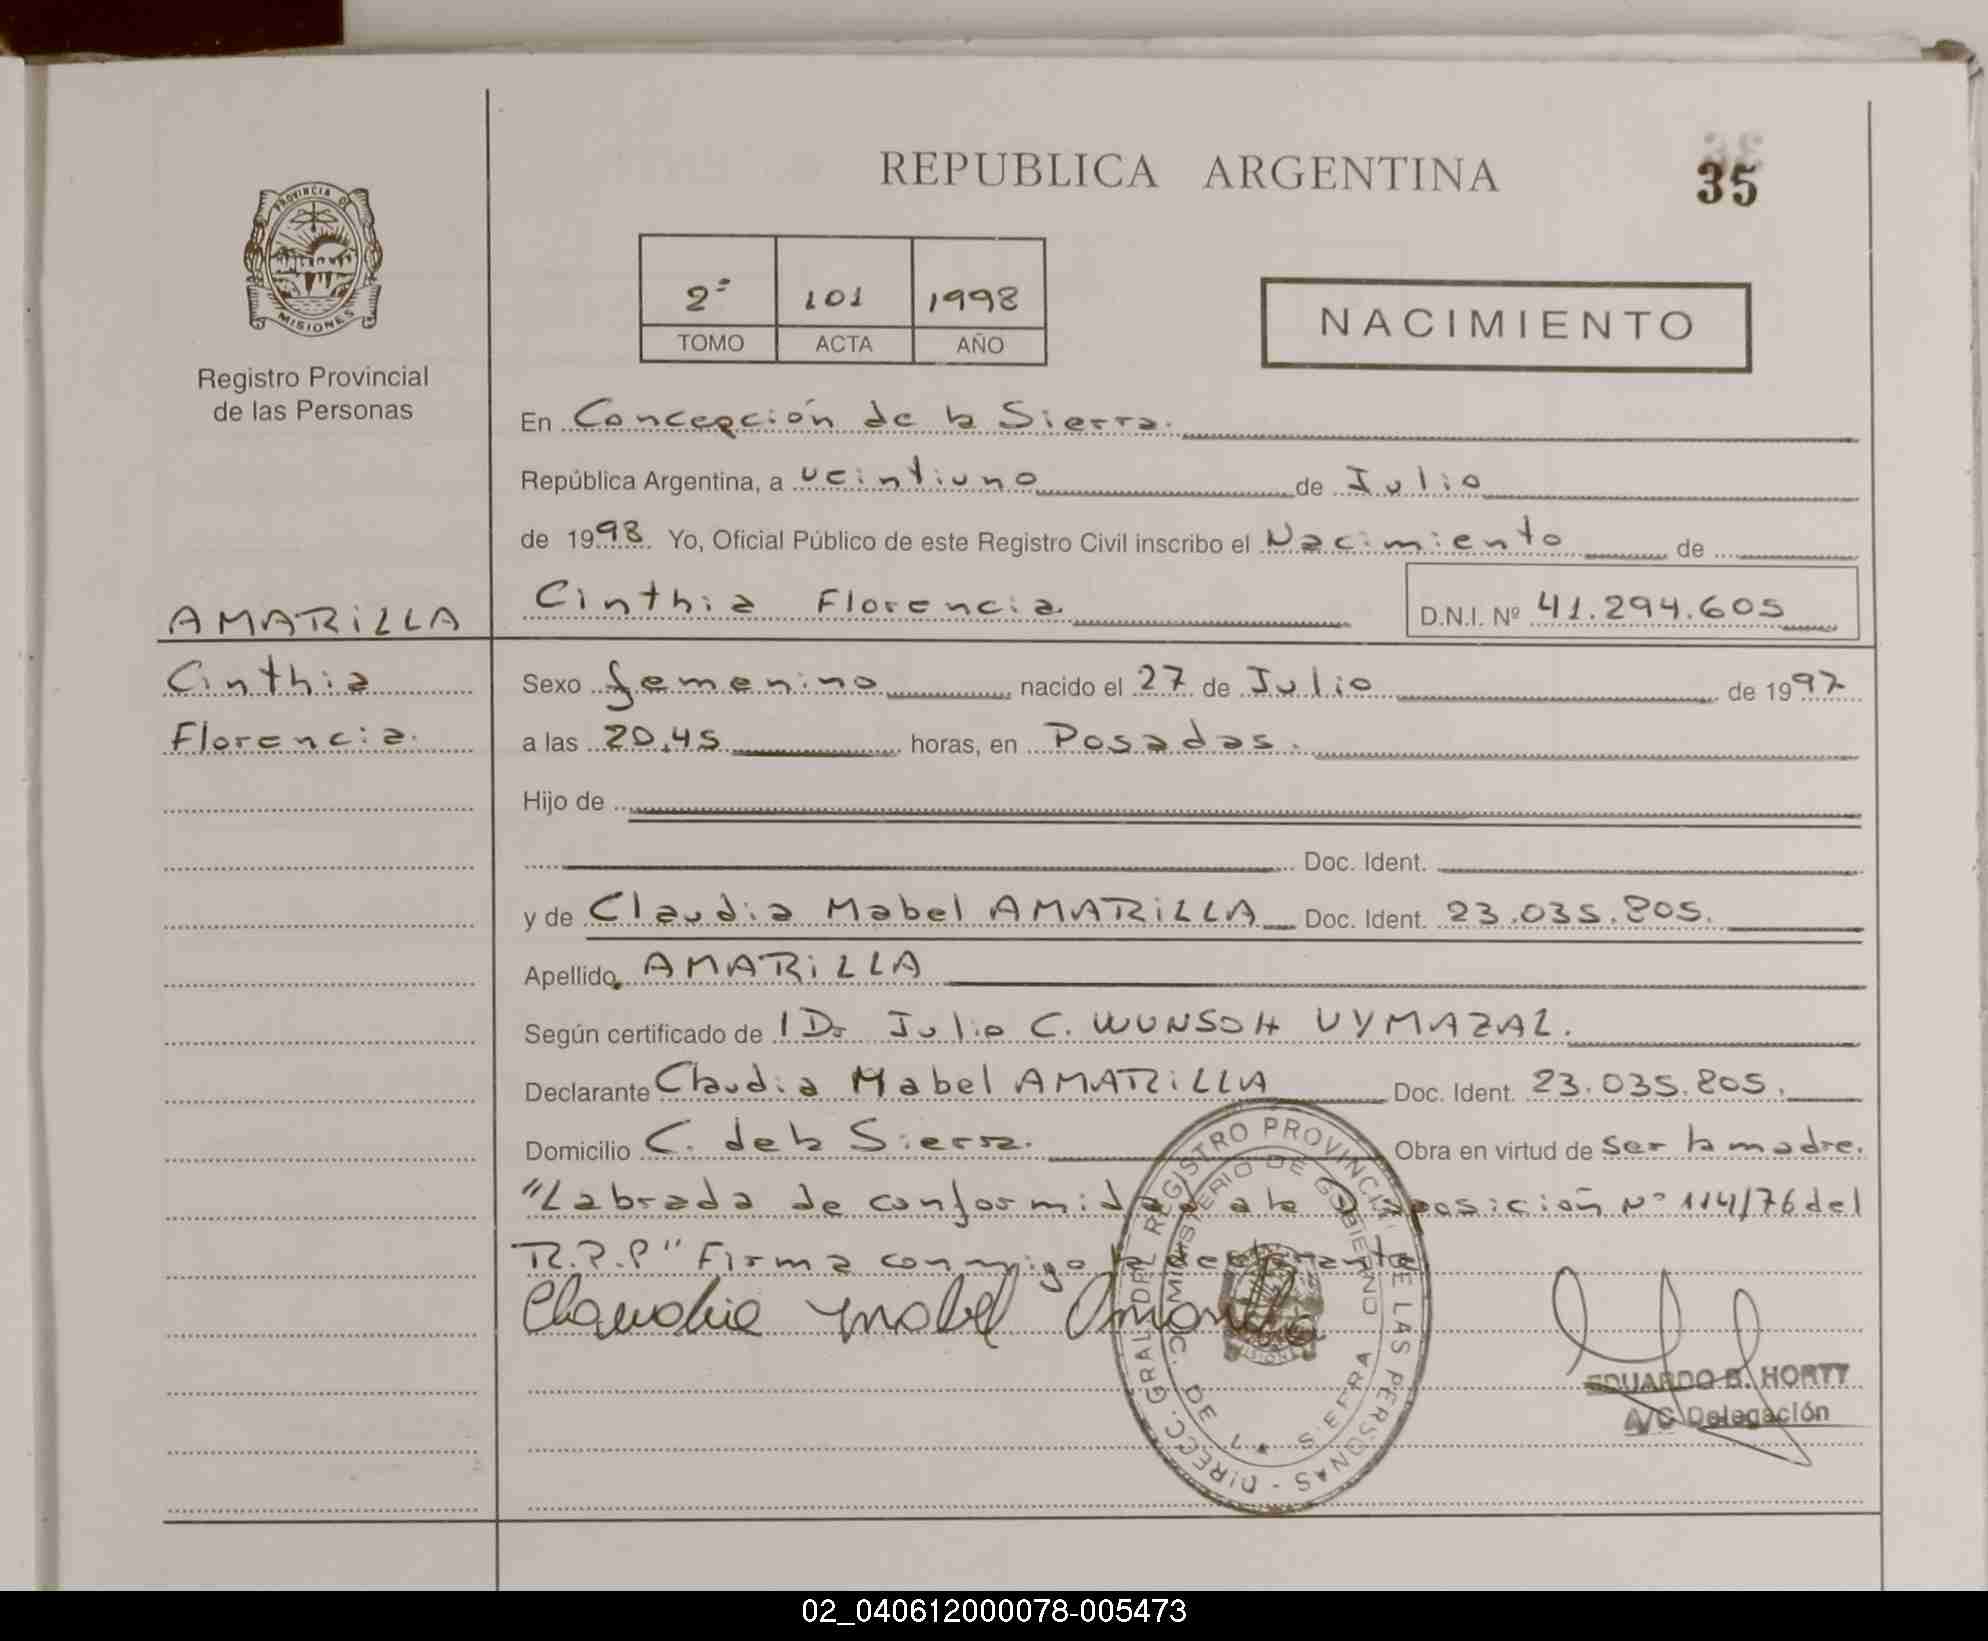 REPUBLICA ARGENTINA
35
PROVINCIA DE
MISIONES
Registro Provincial
de las Personas
2º 101 1998
TOMO ACTA AÑO
NACIMIENTO
En Concepción de la Sierra.
República Argentina, a veintiuno de Julio
de 1998. Yo, Oficial Público de este Registro Civil inscribo el Nacimiento de
AMARiLLA
Cinthia
Florencia.
Cinthia Florencia. D.N.I. Nº 41.294.605
Sexo femenino nacido el 27 de Julio de 1997
a las 20,45 horas, en Posadas.
Hijo de
Doc. Ident.
y de Claudia Mabel AMARiLLA Doc. Ident. 23.035.805.
Apellido AMARiLLA
Según certificado de Dr Julio C. WUNSCH VYMAZAL.
Declarante Claudia Mabel AMARiLLA Doc. Ident. 23.035.805.
Domicilio C. de la Sierra. Obra en virtud de ser la madre.
"Labrada de conformidad a la Disposición Nº 114/76 del
R.P.P" Firma conmigo la declarante
Claudia Mabel Amarilla
DIRECC. GRAL. DEL REGISTRO PROVINCIAL DE LAS PERSONAS
MINISTERIO DE GOBIERNO
SIERRA
EDUARDO B. HORTT
A/C Delegación
02_040612000078-005473